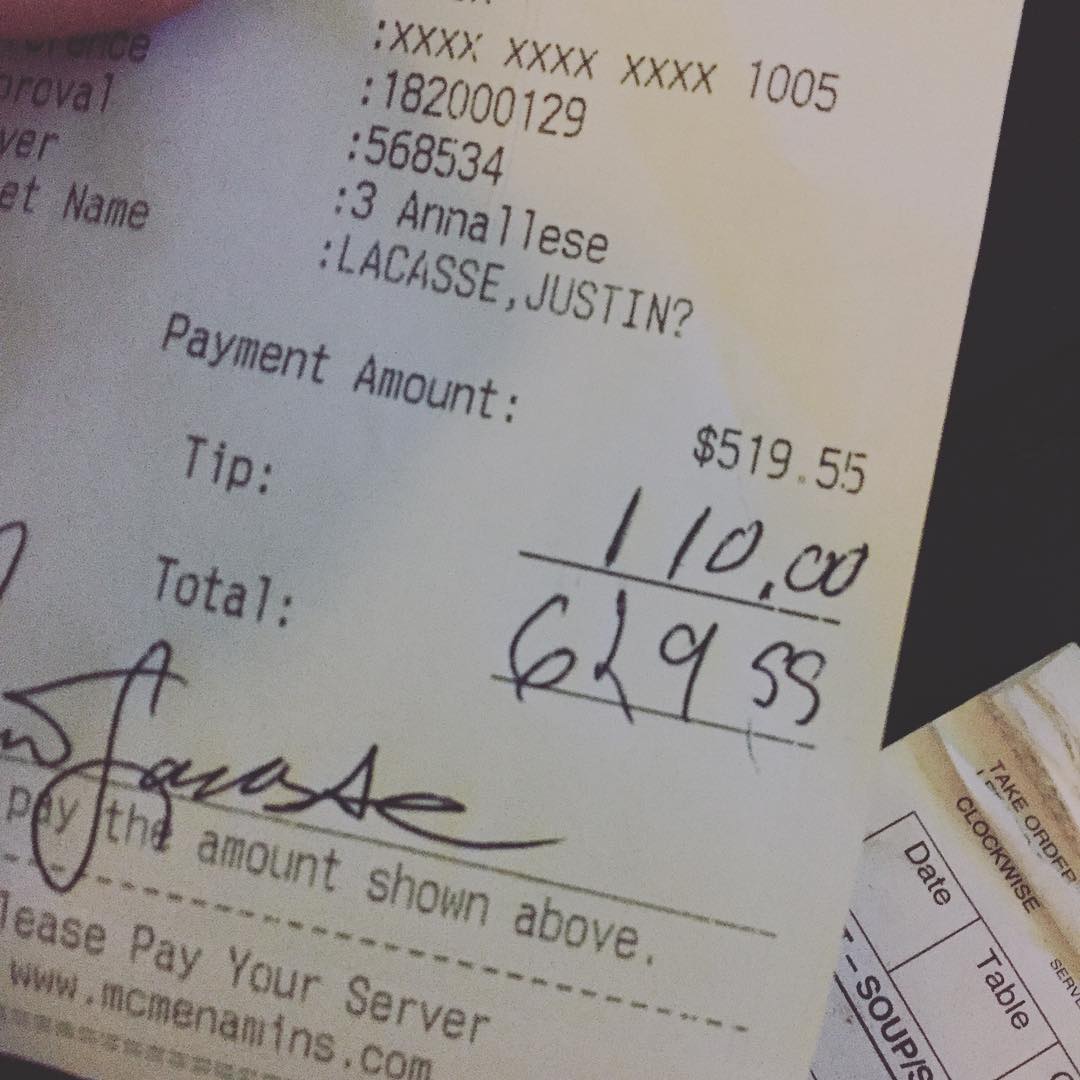 :XXXX XXXX XXXX 1005
proval :182000129
ver :568534
et Name :3 Annallese
:LACASSE,JUSTIN?
Payment Amount: $519.55
Tip: 110.00
Total: 629 55
pay the amount shown above.
lease Pay Your Server
www.mcmenamins.com
TAKE ORDER
CLOCKWISE
Date
Table
SERV
-SOUP/S